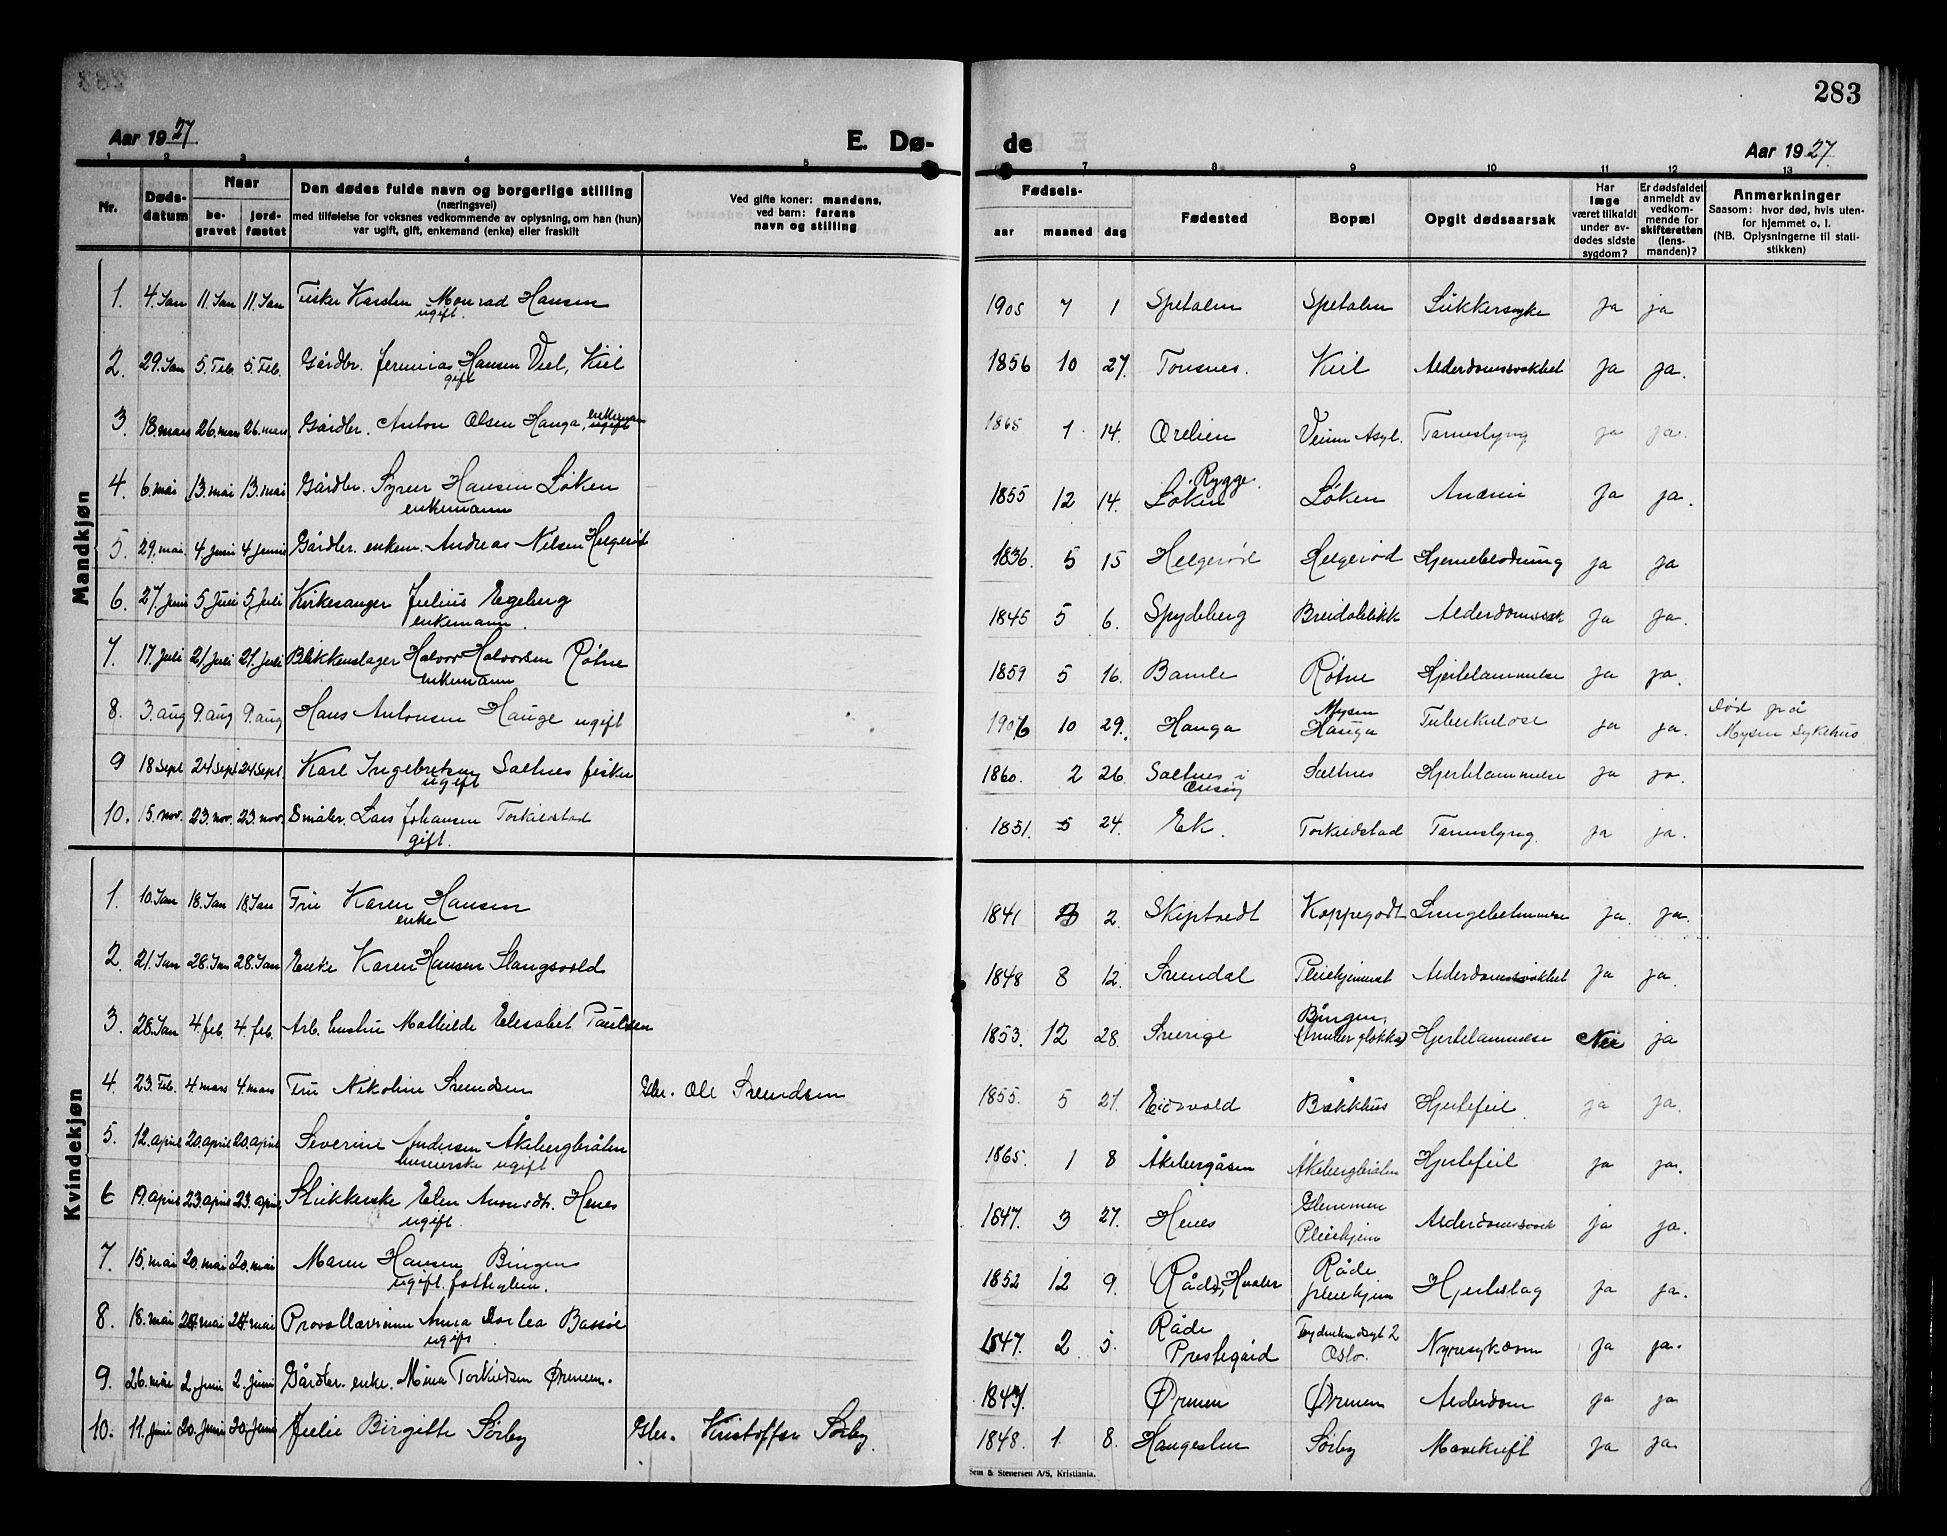 283
Aar 1927
E. Dø-
de
Aar 1927.
1 2 3 4 5 7 8 9 10 11 12 13
Nr.
Døds-
datum
Naar
be-
gravet
jord-
fæstet
Den dødes fulde navn og borgerlige stilling
(næringsvei)
med tilføielse for voksnes vedkommende av oplysning, om han (hun)
var ugift, gift, enkemand (enke) eller fraskilt
Ved gifte koner: mandens,
ved barn: farens
navn og stilling
Fødsels-
aar maaned dag
Fødested
Bopæl
Opgit dødsaarsak
Har
læge
været tilkaldt
under av-
dødes sidste
sygdom?
Er dødsfaldet
anmeldt av
vedkom-
mende for
skifteretten
(lens-
manden)?
Anmerkninger
Saasom: hvor død, hvis uten-
for hjemmet o. l.
(NB. Oplysningerne til stati-
stikken)
Mandkjøn
1. 4. Jan 11. Jan 11. Jan Fisker Karsten Monrad Hansen 1905 7 1 Spetalen Spetalen Sukkersyke Ja ja
ugift.
2. 29. Jan 5. Feb. 5. Feb. Gårdbr. Jeremias Hansen Viel, Kiil 1856 10 27. Tonsnes. Kiil Alderdomssvakhet Ja ja.
gift
3. 18. mars 26. mars 26. mars. Gårdbr. Anton Olsen Hauga, enkemann ugift 1865 1 14. Ørelien Veum Asyl. Tarmslyng ja ja.
4. 6. mai 13. mai 13. mai Gårdbr. Syver Hansen Løken 1855 12 14. Løken Rygge. Løken Anæmi Ja ja.
enkemann
5. 29. mai. 4. juni 4. juni Gårdbr. enkem. Andreas Nilsen Helgerød 1836. 5 15 Helgerød Helgerød Hjerneblødning ja ja
6. 27. juni 5. Juli 5. Juli Kirkesanger Julius Egeberg 1845 5 6. Spydeberg Breidablikk Alderdomssvak ja ja.
enkemann.
7. 17. juli 21. juli 21. juli Blikkenslager Halvor Halvorsen Røtne 1859 5 16. Bamle Røtne Hjertelammelse ja ja.
enkemann
8. 3. aug 9. aug 9. aug Hans Antonsen Hauge ugift 1906 10 29. Hauga Mysen Hauga Tuberkulose ja ja. død på
Mysen Sykehus
9 18 sept 24 sept 24 sept. Karl Ingebretsen Saltnes fisker 1860. 2 26. Saltnes i Saltnes Hjertelammelse ja ja.
ugift Onsøy
10. 15. nov. 23. nov. 23. nov. Småbr. Lars Johansen Torkildstad 1851. 5 24. Ek. Torkildstad Tarmslyng. ja ja.
gift.
Kvindekjøn
1. 10. Jan 18. Jan 18. Jan Fru Karen Hansen 1841 2. Skiptvedt Koppegodt Lungebetennelse ja. ja.
enke
2. 21. Jan 28. Jan 28. Jan Enke Karen Hansen Slangsvold 1848 8 12. Svendal Pleiehjemmet Alderdomssvakhet ja ja.
3. 28. Jan 4. feb. 4. feb. Arb. hustru Mathilde Elisabet Paulsen 1853. 12 28. Sverige Bingen, Hjertelammelse Nei ja
4. 23. Feb. 4. mars 4. mars Fru Nikoline Svendsen Gbr. Ole Svendsen 1855. 5 21. Eidsvold Bækkhus Hjertefeil ja ja.
5. 12. april 20. april 20. april Severine Andersen Åkebergbråten 1865. 1 8 Åkebergåsen Åkebergbråten Hjertefeil ja ja.
ugift
6 19. april 23. april 23. april Elen Henes 1847. 3 27. Henes Glemmen Pleiehjem Alderdomssvak ja ja.
ugift.
7. 15. mai 20. mai 20. mai Maren Hansen Bingen 1852 12 9. Råde, Hvaler Råde pleiehjem Hjerteslag ja ja.
ugift. fattiglem.
8. 18. mai 24 mai 24 mai Anna Dorthea Bassøe 1847. 2 5. Råde Prestegård Oslo. Nyresykdom ja ja.
ugift
9. 26. mai 2. juni 2. juni Gårdbr. enke. Mina Torkildsen Ørmen. Ørmen Ørmen Alderdom ja ja
10. 11. juni 20. juni 20. juni Julie Birgitte Sørby Gbr. Kristoffer Sørby. 1848. 1 8. Haugesten Sørby Mavekreft ja ja.
Sem & Stenersen A/S, Kristiania.